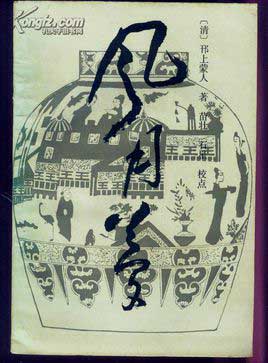 Kongfz.com
孔夫子旧书网
风月梦
〔清〕邗上蒙人 著
校点